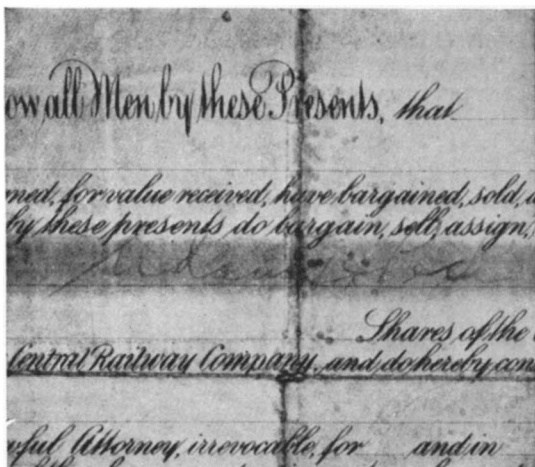 ow all Men by these Presents, that
ned, for value received, have bargained, sold, a
by these presents do bargain, sell, assign,
Shares of the
Central Railway Company, and do hereby con
wful Attorney, irrevocable, for and in